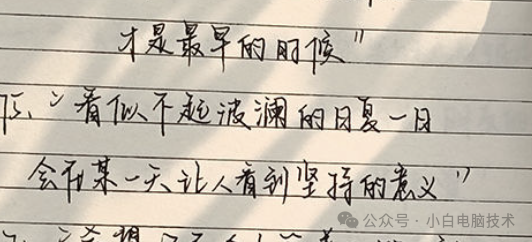 才是最早的时候”
后、“看似不起波澜的日夏一日
会在某一天让人看到坚持的意义”
公众号·小白电脑技术